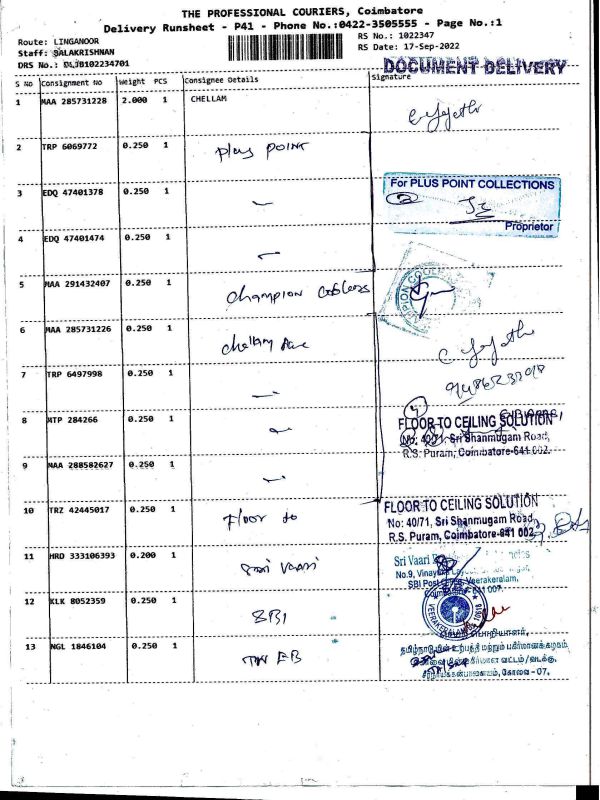 THE PROFESSIONAL COURIERS, Coimbatore
Delivery Runsheet - P41 - Phone No.:0422-3505555 - Page No.:1
Route: LINGANOOR
RS No.: 1022347
Staff: BALAKRISHNAN
RS Date: 17-Sep-2022
DRS No.:
DOCUMENT DELIVERY
S No Consignment No Weight PCS Consignee Details Signature
1 MAA 285731228 2.000 1 CHELLAM
2 TRP 6069772 0.250 1 Plus POINT
3 EDQ 47401378 0.250 1
For PLUS POINT COLLECTIONS
Proprietor
4 EDQ 47401474 0.250 1
5 MAA 291432407 0.250 1 Champion Coolers
6 MAA 285731226 0.250 1 Chellam
7 TRP 6497998 0.250 1
8 MTP 284266 0.250 1
FLOOR TO CEILING SOLUTION
No: 40/71, Sri Shanmugam Road,
R.S. Puram, Coimbatore-641 002.
9 MAA 288582627 0.250 1
10 TRZ 42445017 0.250 1 Floor to
FLOOR TO CEILING SOLUTION
No: 40/71, Sri Shanmugam Road,
R.S. Puram, Coimbatore-641 002
11 HRD 333106393 0.200 1 Sri Vaari
Sri Vaari
No.9,
SBI Post Office, Veerakeralam,
Coimbatore- 641 007.
12 KLK 8052359 0.250 1 SBI
13 NGL 1846104 0.250 1 TN EB
தமிழ்நாடு மின் உற்பத்தி மற்றும் பகிர்மானக்கழகம்
கோவை - 07.